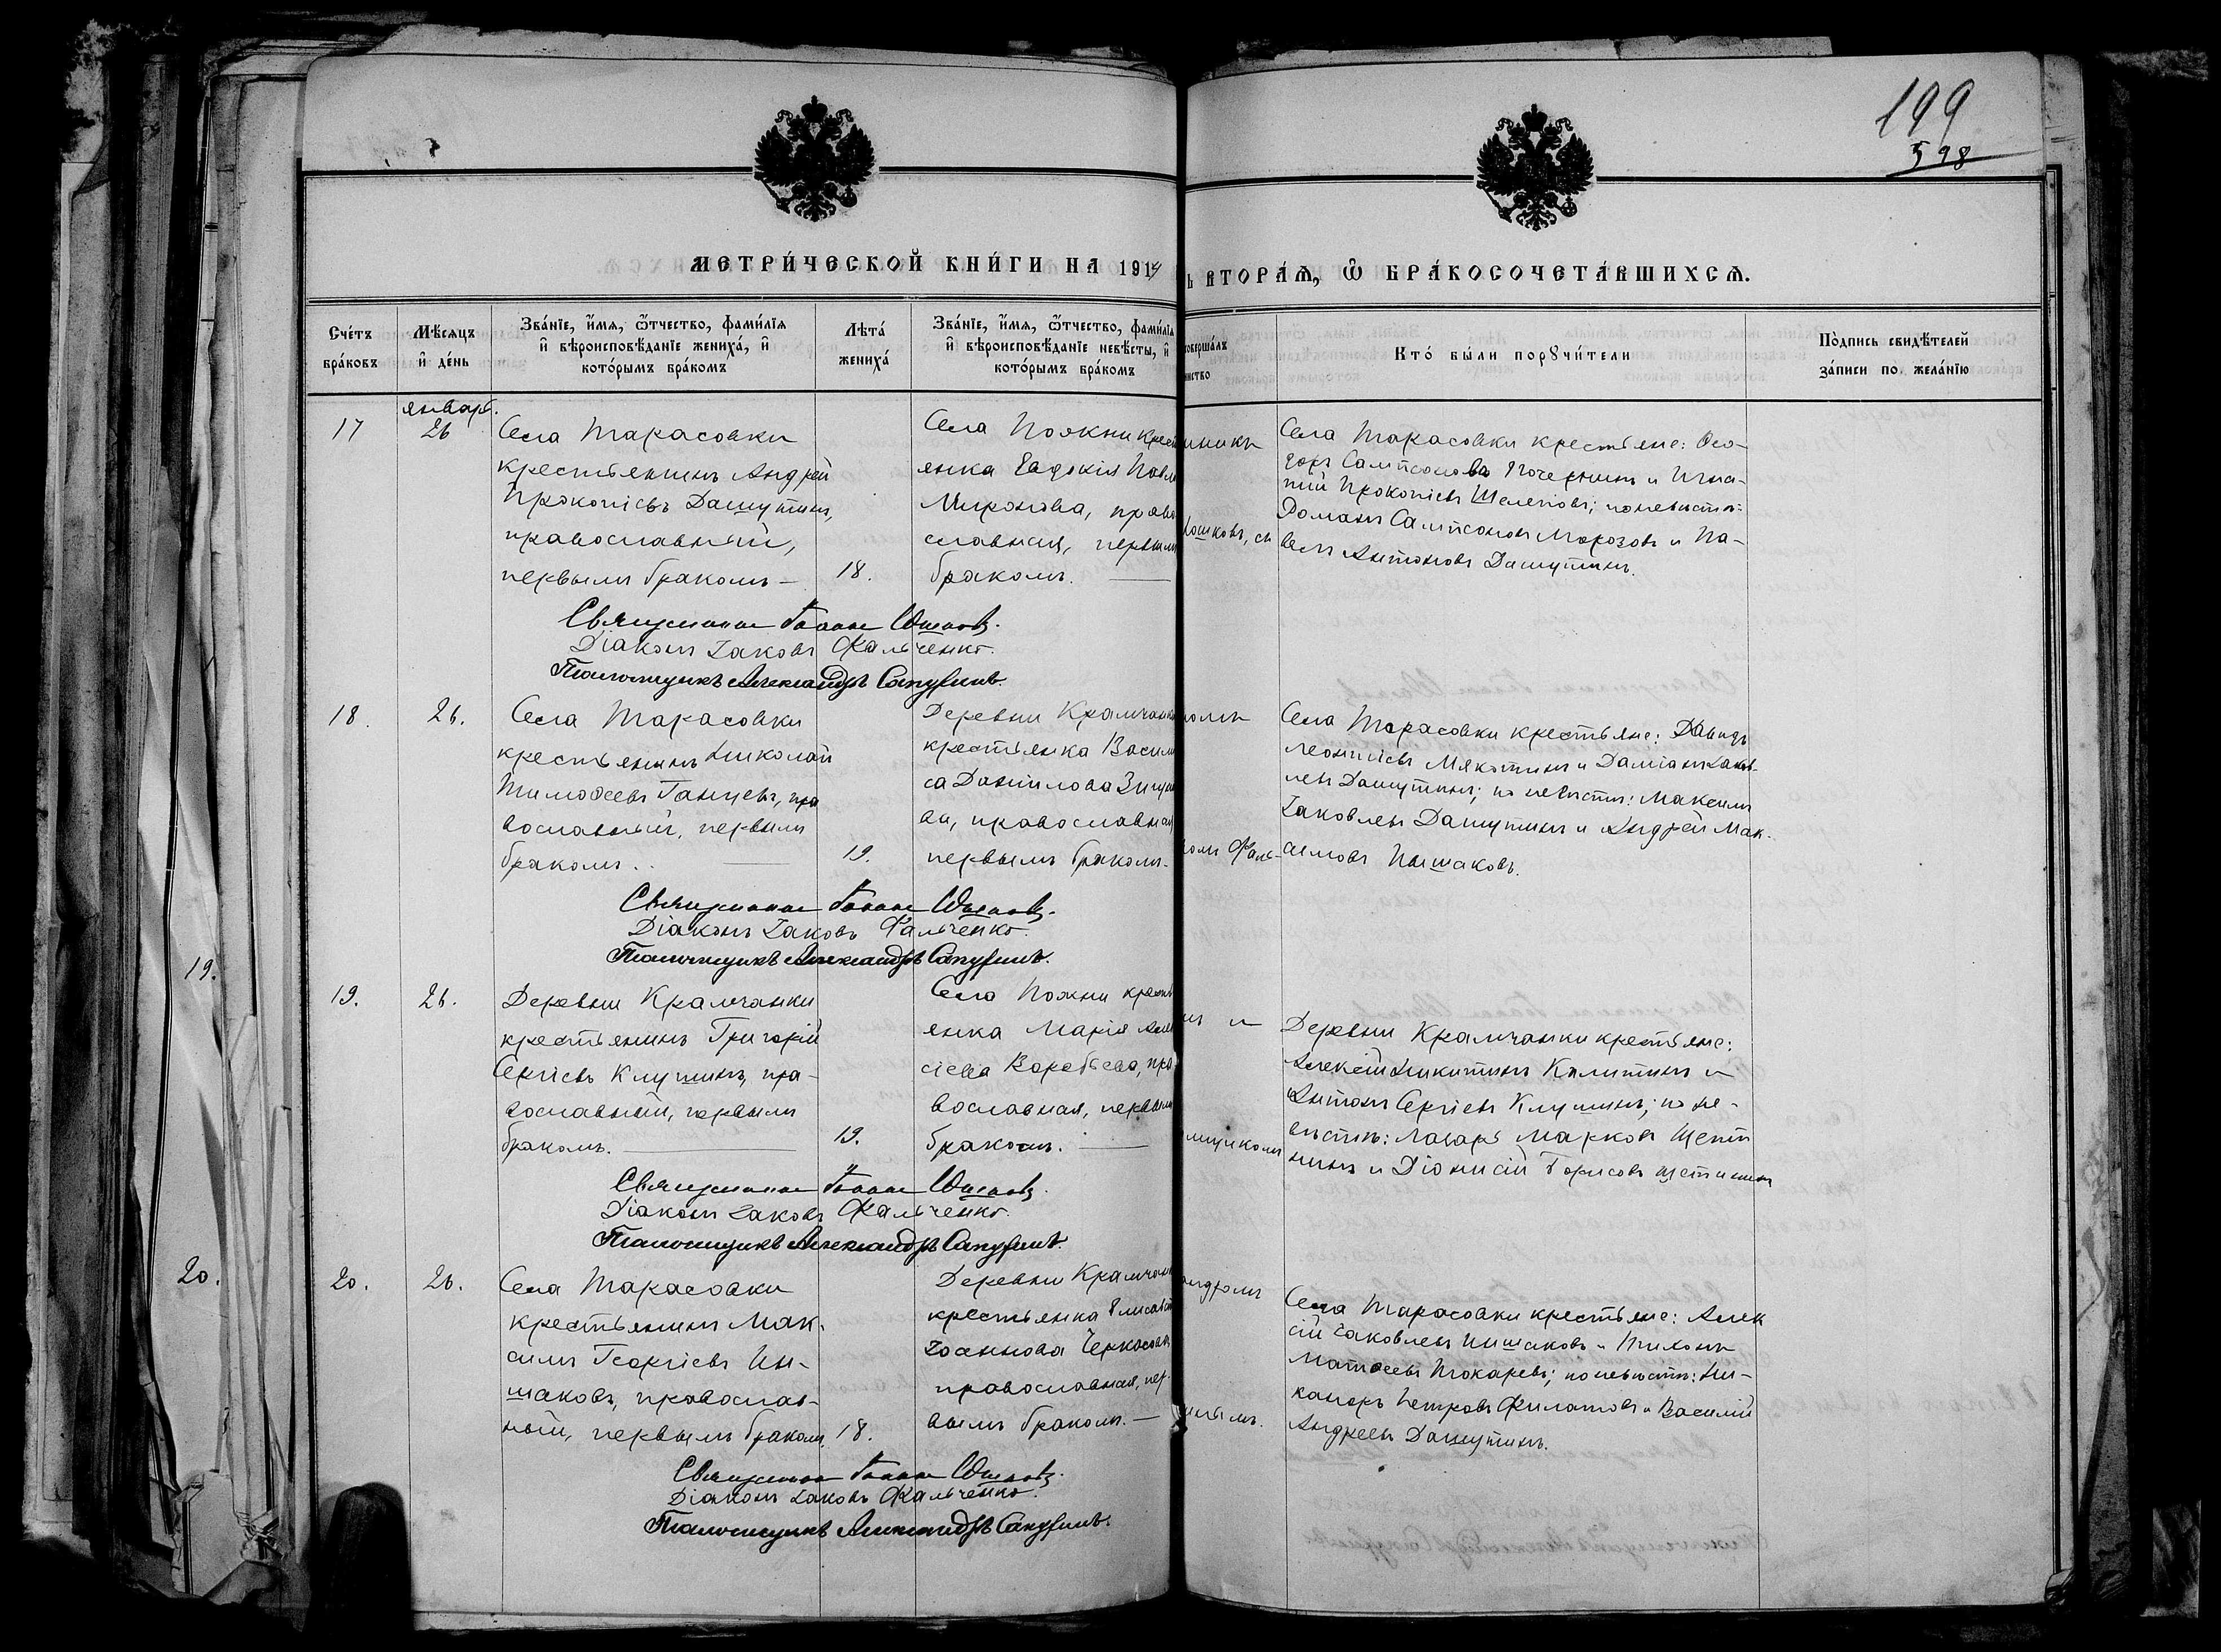 199
598
МЕТРИ́ЧЕСКОЙ КНИ́ГИ НА 1914
Ь ВТОРА́Ѧ, Ѿ БРА́КОСОЧЕТА́ВШИХСѦ.
Сче́тъ бра́ковъ
Мѣ́сяцъ и҆ де́нь
Зва́нїе, и҆́мѧ, ѻ҆́тчество, фами́лїѧ и҆ вѣроисповѣ́данїе жениха́, и҆ кото́рымъ бра́комъ
Лѣта́ жениха́
Зва́нїе, и҆́мѧ, ѻ҆́тчество, фами́лїѧ и҆ вѣроисповѣ́данїе невѣ́сты, и҆ кото́рымъ бра́комъ
соверша́лъ
инство
Кто́ бы́ли порꙋчи́тели
По́дпись свидѣ́телей за́писи по жела́нїю
январ.
17
26
Села Тарасовки
крестьянинъ Андрей
Прокопіевъ Дашутинъ,
православный,
первымъ бракомъ —
18.
Села Пожни крест
янка Евдокія Павл
Миронова, право
славная, первым
бракомъ. —
шковъ, съ
Села Тарасовки крестьяне: Ѳео-
доръ Сампсоновъ Почернинъ и Игна-
тій Прокопіевъ Шелеповъ; по невѣстѣ:
Романъ Сампсоновъ Морозовъ и Па-
велъ Антоновъ Дашутинъ.
Священникъ Іоаннъ
Діаконъ Іаковъ Фальченко.
Псаломщикъ Александръ Сапухинъ.
18.
26.
Села Тарасовки
крестьянинъ Николай
Тимоѳеевъ Ганцевъ, пра
вославный, первымъ
бракомъ.
19.
Деревни Крамчанки
крестьянка Васили
са Даніилова
ва, православная
первымъ бракомъ.
омъ Фаль-
Села Тарасовки крестьяне: Давидъ
Леонтіевъ Мякотинъ и Даміанъ Іаков-
левъ Дашутинъ; по невѣстѣ: Максимъ
Іаковлевъ Дашутинъ и Андрей Мак-
симовъ Ишаковъ.
Священникъ Іоаннъ
Діаконъ Іаковъ Фальченко.
Псаломщикъ Александръ Сапухинъ.
19.
19.
26.
Деревни Крамчанки
крестьянинъ Григорій
Сергіевъ Клушинъ, пра-
вославный, первымъ
бракомъ.
19.
Села Пожни крест
янка Марія
сіева Воробьева, пра
вославная, первым
бракомъ. —
мщикомъ
Деревни Крамчанки крестьяне:
Алексій Никитинъ Калитинъ и
Антонъ Сергіевъ Клушинъ; по не-
вѣстѣ: Лазарь Марковъ Щети
нинъ и Діонисій Борисовъ Щетининъ
Священникъ Іоаннъ
Діаконъ Іаковъ Фальченко.
Псаломщикъ Александръ Сапухинъ.
20.
20.
26.
Села Тарасовки
крестьянинъ Мак-
симъ Георгіевъ Иш-
шаковъ, православ-
ный, первымъ бракомъ.
18.
Деревни Крамчан
крестьянка Елисавет
Іоаннова Черкасова
православная, пер-
вымъ бракомъ. —
андромъ
Села Тарасовки крестьяне: Алек
сій Іаковлевъ Ишаковъ и Тихонъ
Матѳеевъ Токаревъ; по невѣстѣ: Ни-
каноръ Петровъ Филатовъ и Василій
Андреевъ Дашутинъ.
Священникъ Іоаннъ
Діаконъ Іаковъ Фальченко.
Псаломщикъ Александръ Сапухинъ.